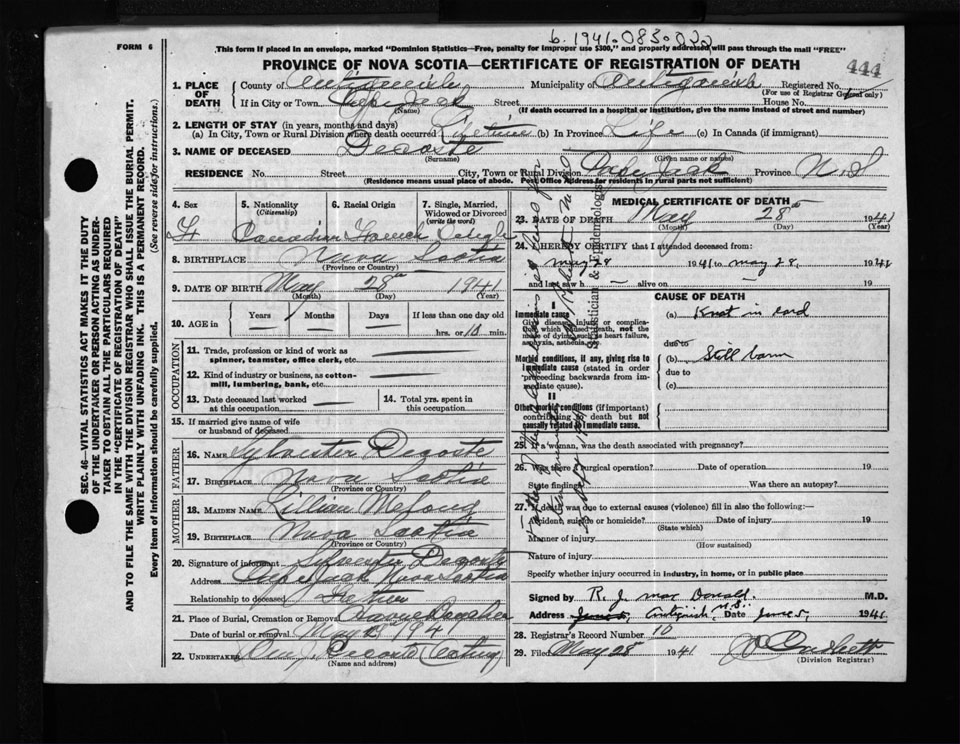 b. 1941-083-022
FORM 6
This form if placed in an envelope, marked "Dominion Statistics—Free, penalty for improper use $300," and properly addressed will pass through the mail "FREE"
PROVINCE OF NOVA SCOTIA—CERTIFICATE OF REGISTRATION OF DEATH
444
1. PLACE OF DEATH
County of Antigonish Municipality of Antigonish Registered No.
(For use of Registrar General only)
If in City or Town Street House No.
(If death occurred in a hospital or institution, give the name instead of street and number)
2. LENGTH OF STAY (in years, months and days)
(a) In City, Town or Rural Division where death occurred (b) In Province Life (c) In Canada (if immigrant)
3. NAME OF DECEASED Decoste
(Surname) (Given name or names)
RESIDENCE No. Street City, Town or Rural Division Province N.S
(Residence means usual place of abode. Post Office Address for residents in rural parts not sufficient)
4. Sex
5. Nationality (Citizenship)
6. Racial Origin
7. Single, Married, Widowed or Divorced (write the word)
Canadian French
8. BIRTHPLACE Nova Scotia
(Province or Country)
9. DATE OF BIRTH May 28th 1941
(Month) (Day) (Year)
10. AGE in Years Months Days If less than one day old
hrs. or 10 min.
OCCUPATION
11. Trade, profession or kind of work as spinner, teamster, office clerk, etc.
12. Kind of industry or business, as cotton-mill, lumbering, bank, etc.
13. Date deceased last worked at this occupation
14. Total yrs. spent in this occupation
15. If married give name of wife or husband of deceased
FATHER
16. NAME Sylvester Decoste
17. BIRTHPLACE Nova Scotia
(Province or Country)
MOTHER
18. MAIDEN NAME Lillian
19. BIRTHPLACE Nova Scotia
(Province or Country)
20. Signature of informant Sylvester Decoste
Address Nova Scotia
Relationship to deceased Father
21. Place of Burial, Cremation or Removal Havre Boucher
Date of burial or removal May 1941
22. UNDERTAKER Decoste
(Name and address)
MEDICAL CERTIFICATE OF DEATH
23. DATE OF DEATH May 28th 1941
(Month) (Day) (Year)
24. I HEREBY CERTIFY that I attended deceased from:
May 28 1941 to May 28, 1941
and last saw h— alive on — 19
CAUSE OF DEATH
I
Immediate cause
Give disease, injury or complication which caused death, not the mode of dying, such as heart failure, asphyxia, asthenia, etc.
(a) Knot in cord
due to
Morbid conditions, if any, giving rise to immediate cause (stated in order proceeding backwards from immediate cause).
(b) Still born
due to
(c)
II
Other morbid conditions (important) contributing to death but not causally related to immediate cause.
25. If a woman, was the death associated with pregnancy?
26. Was there a surgical operation? Date of operation 19
State findings Was there an autopsy?
27. If death was due to external causes (violence) fill in also the following:—
Accident, suicide or homicide? Date of injury 19
(State which)
Manner of injury
(How sustained)
Nature of injury
Specify whether injury occurred in industry, in home, or in public place
Signed by R. J. Mac Donald. M.D.
Address Antigonish, N.S. Date June 5, 1941
28. Registrar's Record Number 10
29. Filed May 28 1941
(Division Registrar)
Statistician & Epidemiologist
SEC. 46—VITAL STATISTICS ACT MAKES IT THE DUTY
OF THE UNDERTAKER OR PERSON ACTING AS UNDER-
TAKER TO OBTAIN ALL THE PARTICULARS REQUIRED
IN THE "CERTIFICATE OF REGISTRATION OF DEATH"
AND TO FILE THE SAME WITH THE DIVISION REGISTRAR WHO SHALL ISSUE THE BURIAL PERMIT.
WRITE PLAINLY WITH UNFADING INK. THIS IS A PERMANENT RECORD.
Every item of Information should be carefully supplied. (See reverse side for instructions.)